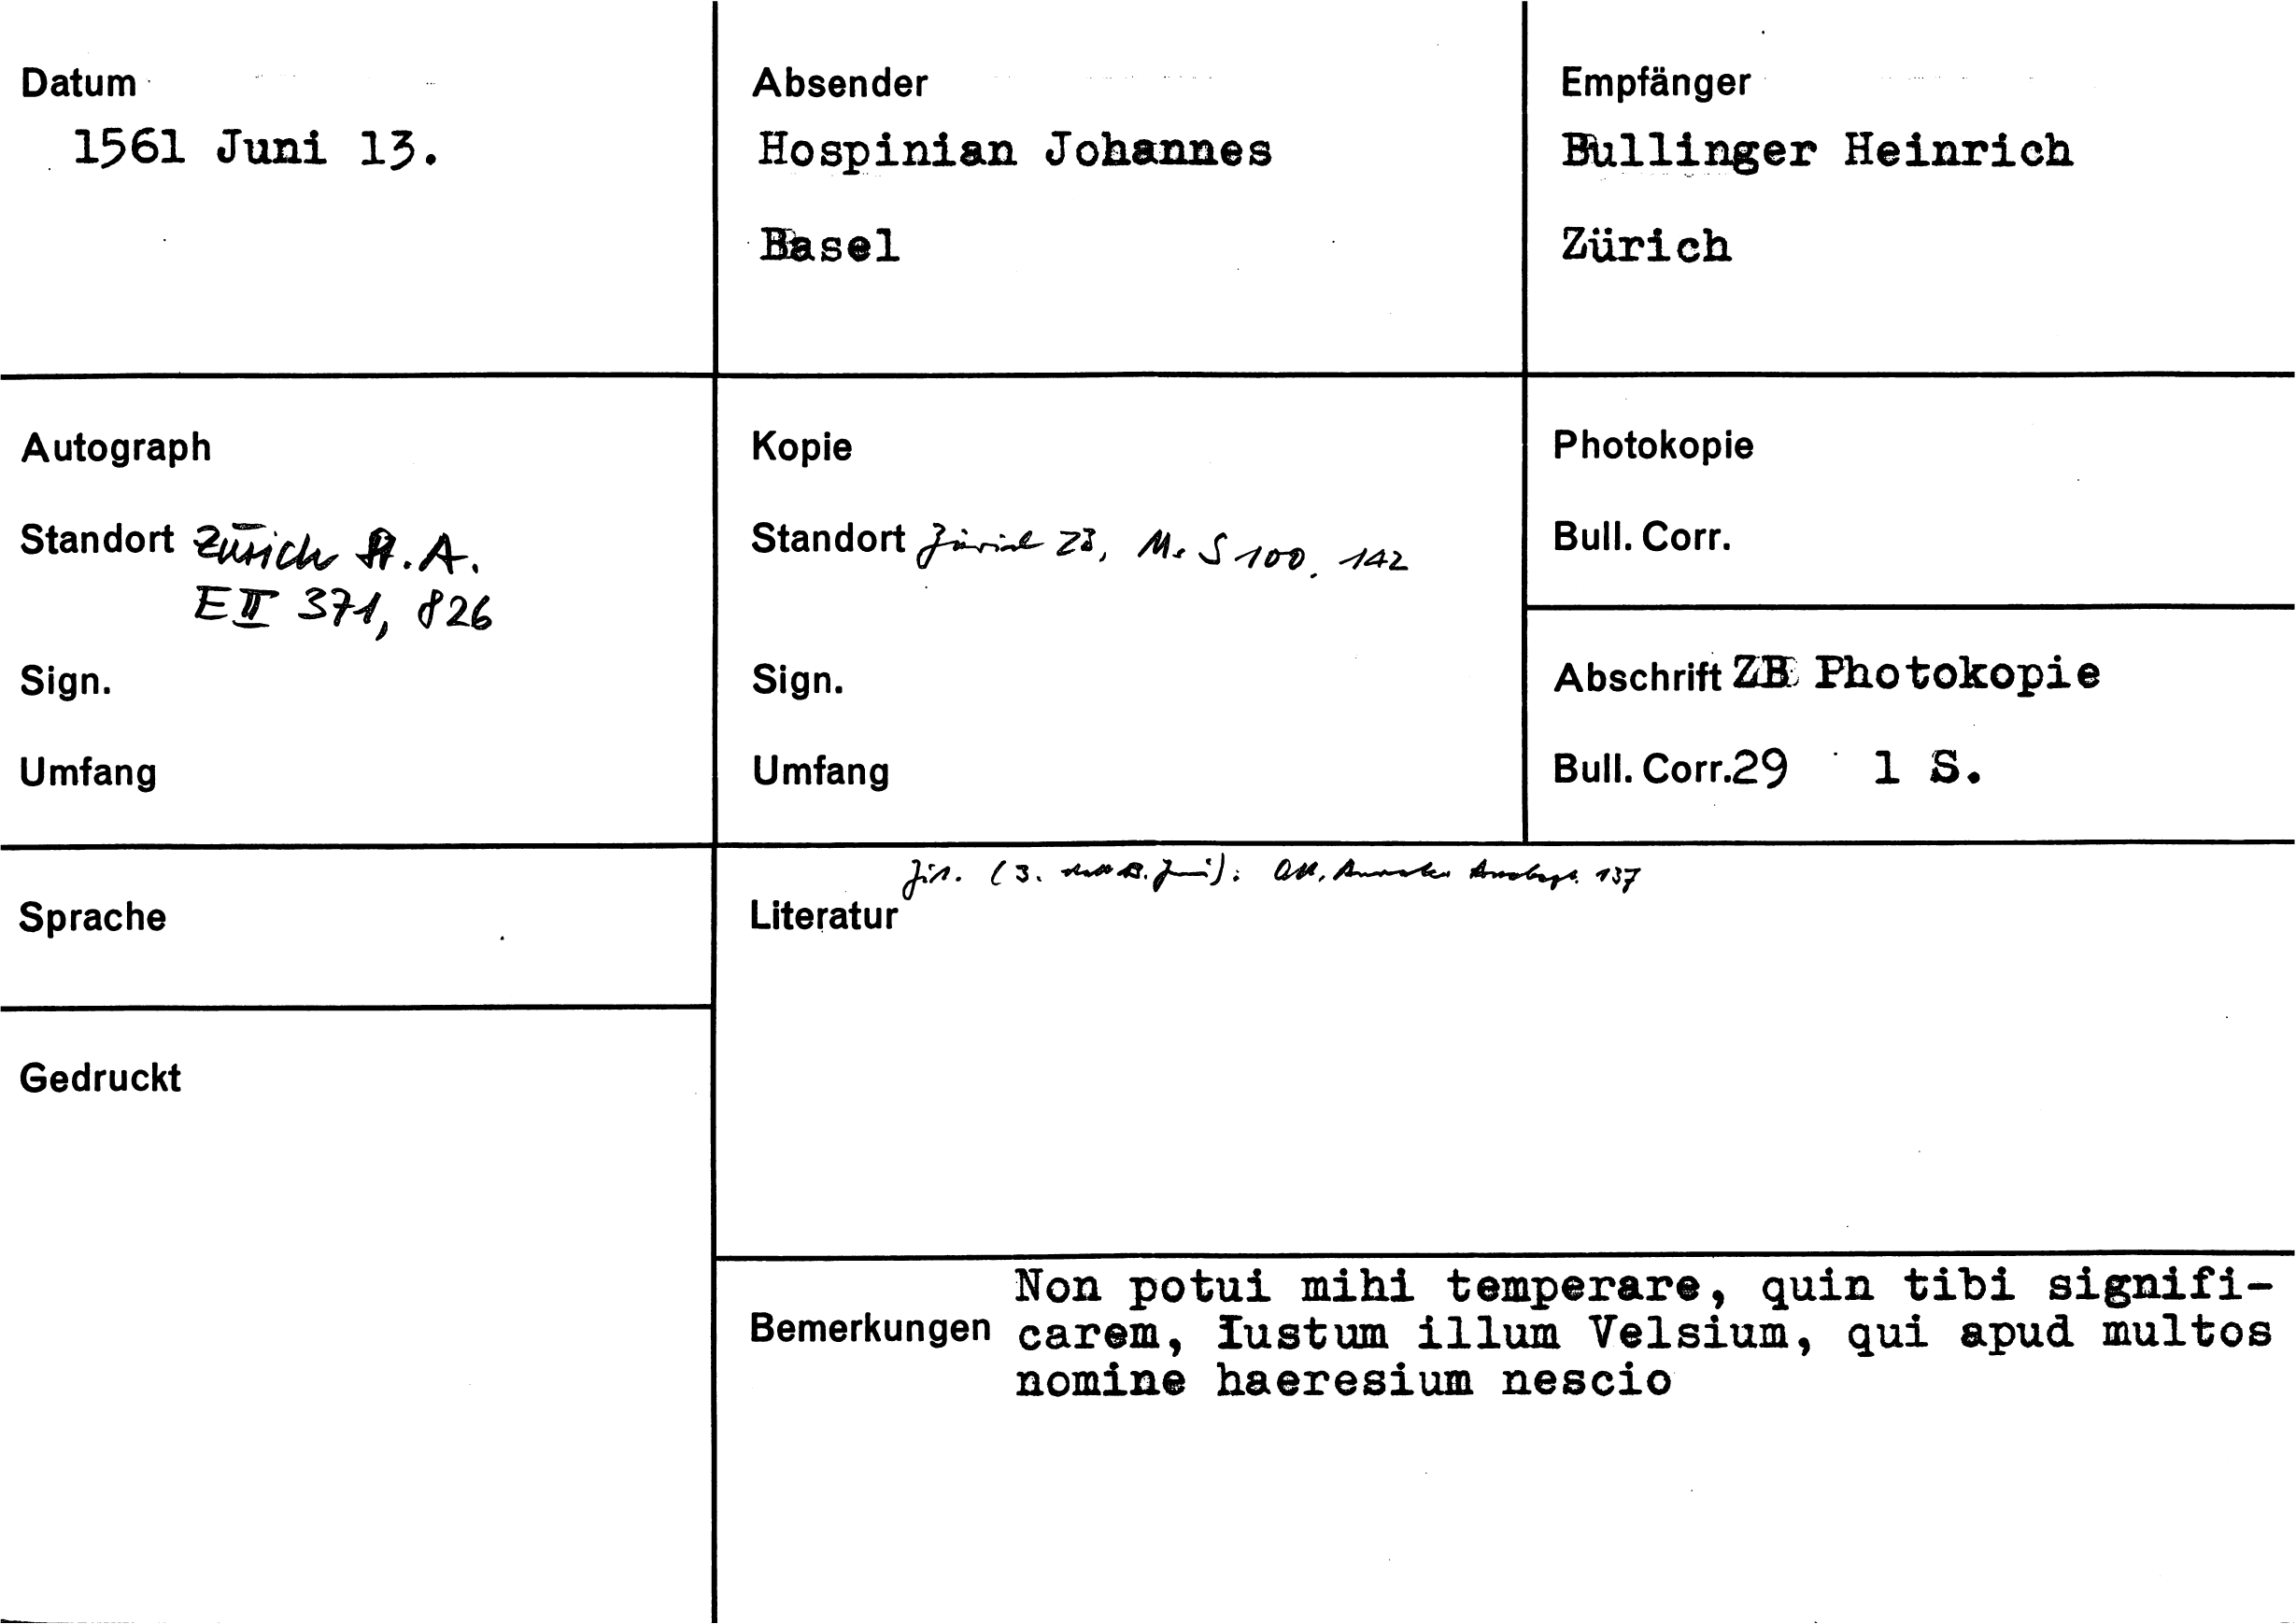 Datum
1561 Juni 13.
Absender
Hospinian Johannes
Basel
Empfänger
Bullinger Heinrich
Zürich
Autograph
Standort Zürich St.A.
E II 371, 826
Sign.
Umfang
Kopie
Standort Zürich ZB, Ms S 100, 142
Sign.
Umfang
Photokopie
Bull. Corr.
Abschrift ZB Photokopie
Bull. Corr. 29 1 S.
Sprache
Gedruckt
(3. 13. Juni): 137
Literatur
Bemerkungen
Non potui mihi temperare, quin tibi signifi-
carem, Iustum illum Velsium, qui apud multos
nomine haeresium nescio